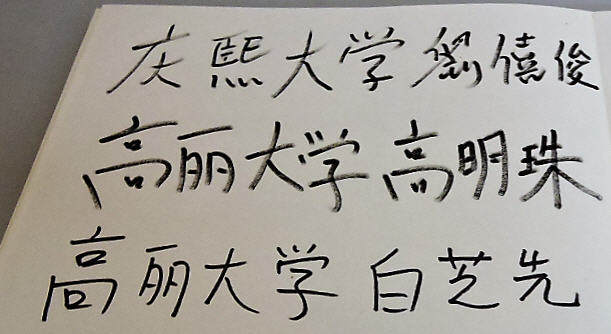 庆熙大学 劉僖俊
高丽大学 高明珠
高丽大学 白芝先